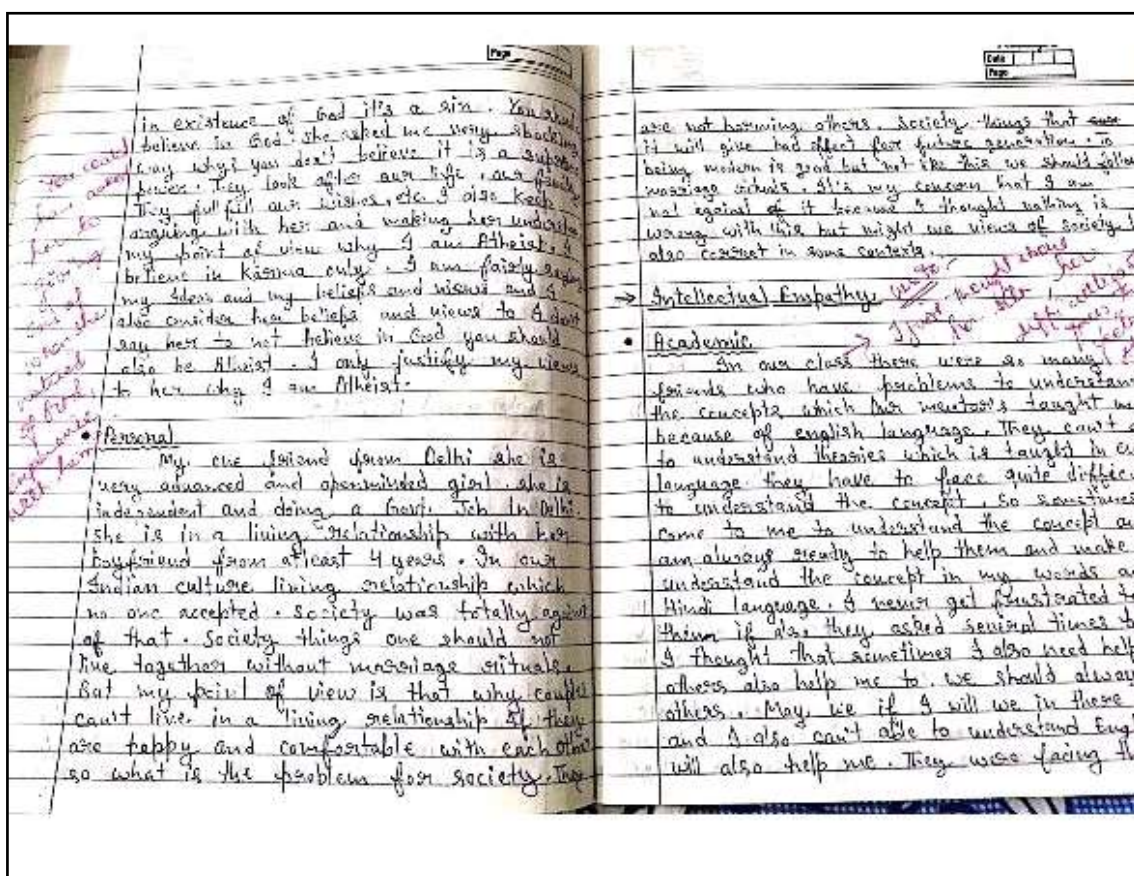 Page
in existence of God it's a sin. You should
believe in God. She asked me very shocking
way why you don't believe it is a supreme
power. They look after our life, our family
They full fill our wishes, etc. I also keep
arguing with her and making her understan
my point of view why I am Atheist. I
believe in Karma only. I am fairly saying
my ideas and my beliefs and views and I
also consider her beliefs and views to I don't
say her to not believe in God you should
also be Atheist. I only justify my views
to her why I am Atheist.
You could
her to
giving
and of
when she
noticed
God,
experience
with him
• Personal
My one friend from Delhi she is
very advanced and openminded girl. she is
independent and doing a Govt. Job In Delhi.
She is in a living relationship with her
boyfriend from atleast 4 years. In our
Indian culture living relationship which
no one accepted. Society was totally against
of that. Society things one should not
live together without marriage rituals.
But my point of view is that why couple
can't live in a living relationship if they
are happy and comfortable with each other
so what is the problem for society. They
Date
Page
are not harming others. Society things that
it will give bad effect for future generation. To
being modern is good but not like this we should follow
marriage rituals. It's my concern that I am
not against of it because I thought nothing is
wrong with this but might we views of society
also correct in some contexts.
→ Intellectual Empathy
• Academic
I just
for her
left
your
In our class there were so many
friends who have problems to understan
the concepts which Our mentor's taught
because of english language. They can't
to understand theories which is taught in
language they have to face quite difficu
to understand the concept. So sometimes
come to me to understand the concept a
am always ready to help them and make
understand the concept in my words a
Hindi language. I never get frustrated
them if they asked several times
I thought that sometimes I also need help
others also help me to. we should alway
others. May we if I will we in there
and I also can't able to understand Eng
will also help me. They were facing th